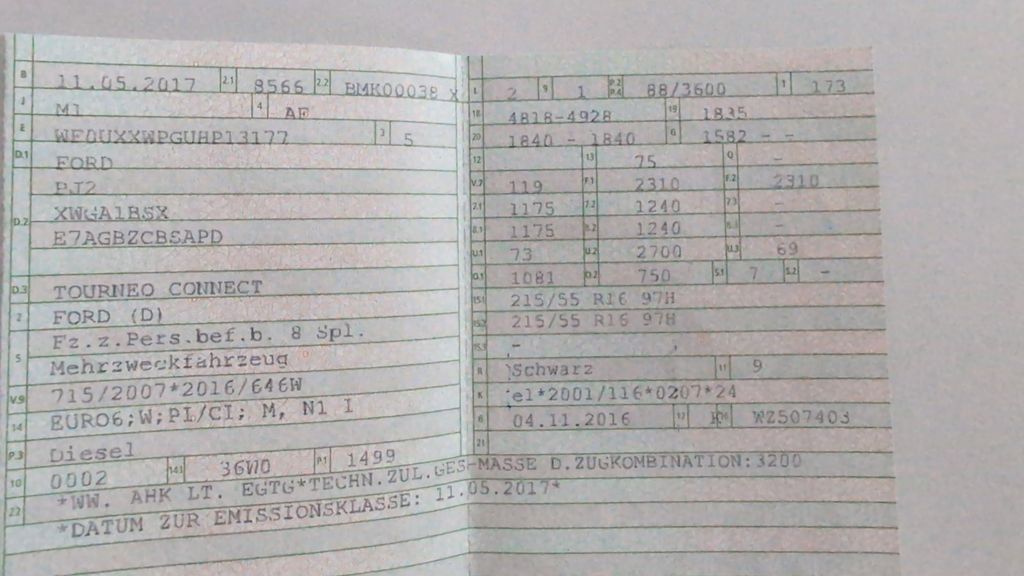 B 11.05.2017 2.1 8566 2.2 BMK00038 X
J M1 4 AF
E WF0UXXWPGUHP13177 3 5
D.1 FORD
PJ2
D.2 XWGA1BSX
E7AGBZCBSAPD
D.3 TOURNEO CONNECT
2 FORD (D)
Fz.z.Pers.bef.b. 8 Spl.
5 Mehrzweckfahrzeug
V.9 715/2007*2016/646W
14 EURO6;W;PI/CI; M, N1 I
P.3 Diesel
10 0002 14.1 36W0 P.1 1499
22 *WW. AHK LT. EGTG*TECHN.ZUL.GES-MASSE D.ZUGKOMBINATION:3200
*DATUM ZUR EMISSIONSKLASSE: 11.05.2017*
L 2 9 1 P.2 P.4 88/3600 T 173
18 4818-4928 19 1835
20 1840 - 1840 G 1582 - -
12 13 75 Q -
V.7 119 F.1 2310 F.2 2310
7.1 1175 7.2 1240 7.3 -
8.1 1175 8.2 1240 8.3 -
U.1 73 U.2 2700 U.3 69
O.1 1081 O.2 750 S.1 7 S.2 -
15.1 215/55 R16 97H
15.2 215/55 R16 97H
15.3 -
R Schwarz 11 9
K e1*2001/116*0207*24
6 04.11.2016 17 16 WZ507403
21